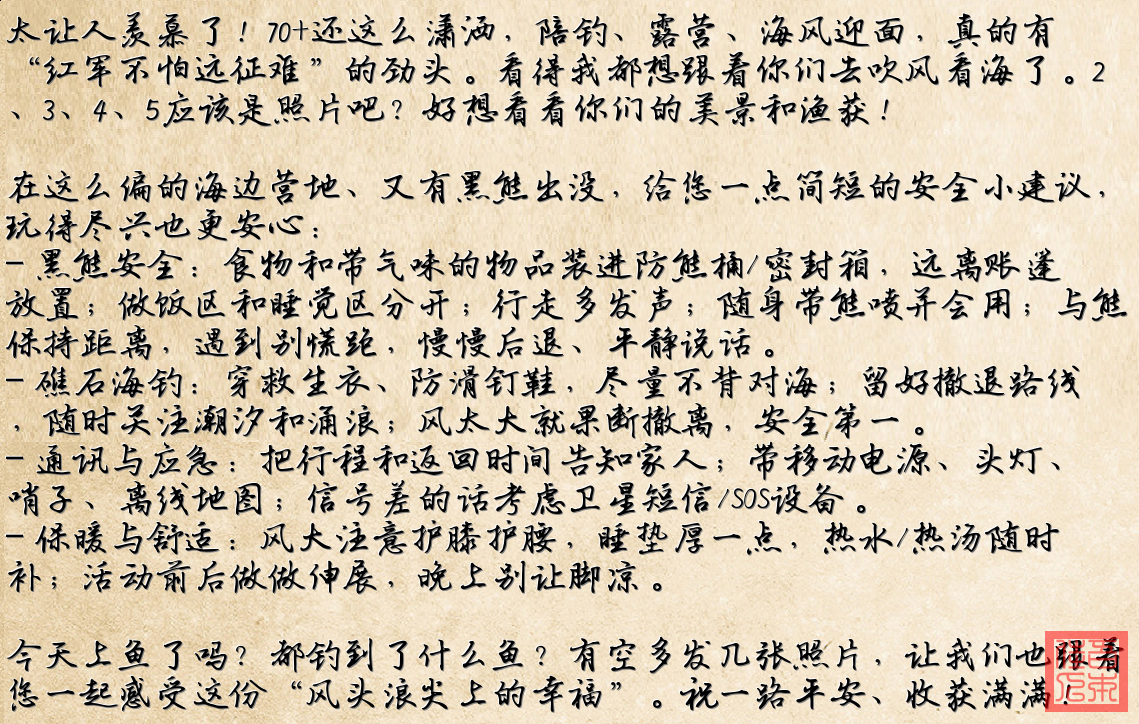 太让人羡慕了！70+还这么潇洒，陪钓、露营、海风迎面，真的有
“红军不怕远征难”的劲头。看得我都想跟着你们去吹风看海了。2
、3、4、5应该是照片吧？好想看看你们的美景和渔获！
在这么偏的海边营地、又有黑熊出没，给您一点简短的安全小建议，
玩得尽兴也更安心：
- 黑熊安全：食物和带气味的物品装进防熊桶/密封箱，远离帐篷
放置；做饭区和睡觉区分开；行走多发声；随身带熊喷并会用；与熊
保持距离，遇到别慌跑，慢慢后退、平静说话。
- 礁石海钓：穿救生衣、防滑钉鞋，尽量不背对海；留好撤退路线
，随时关注潮汐和涌浪；风太大就果断撤离，安全第一。
- 通讯与应急：把行程和返回时间告知家人；带移动电源、头灯、
哨子、离线地图；信号差的话考虑卫星短信/SOS设备。
- 保暖与舒适：风大注意护膝护腰，睡垫厚一点，热水/热汤随时
补；活动前后做做伸展，晚上别让脚凉。
今天上鱼了吗？都钓到了什么鱼？有空多发几张照片，让我们也跟着
您一起感受这份“风头浪尖上的幸福”。祝一路平安、收获满满！